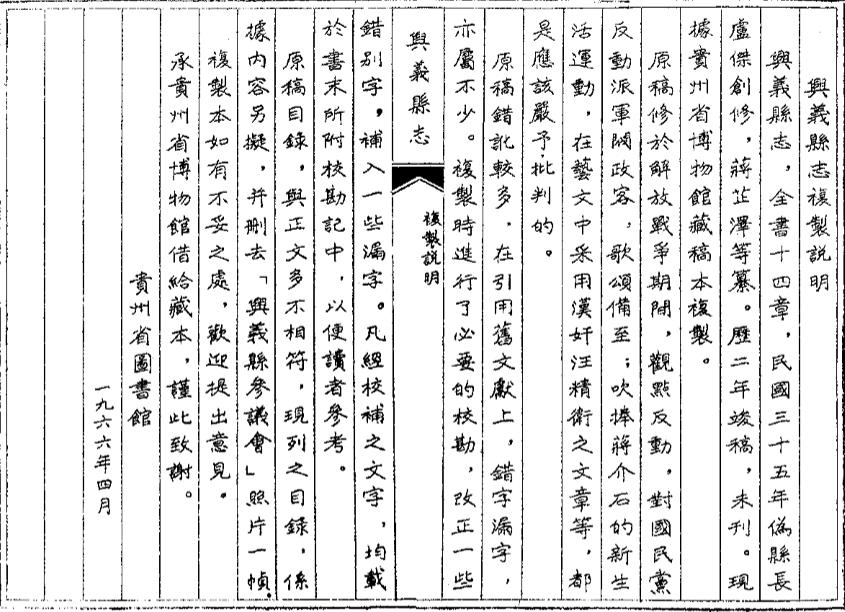 興義縣志複製説明
興義縣志，全書十四章，民國三十五年偽縣長
盧傑創修，蔣芷澤等纂。歷二年竣稿，未刊。現
據貴州省博物館藏稿本複製。
原稿修於解放戰爭期間，觀點反動，對國民黨
反動派軍閥政客，歌頌備至；吹捧蔣介石的新生
活運動，在藝文中采用漢奸汪精衛之文章等，都
是應該嚴予批判的。
原稿錯訛較多，在引用舊文獻上，錯字漏字，
亦屬不少。複製時進行了必要的校勘，改正一些
興義縣志
複製説明
錯别字，補入一些漏字。凡經校補之文字，均載
於書末所附校勘記中，以便讀者參考。
原稿目録，與正文多不相符，現列之目録，係
據内容另擬，并刪去「興義縣參議會」照片一幀。
複製本如有不妥之處，歡迎提出意見。
承貴州省博物館借給藏本，謹此致謝。
貴州省圖書館
一九六六年四月